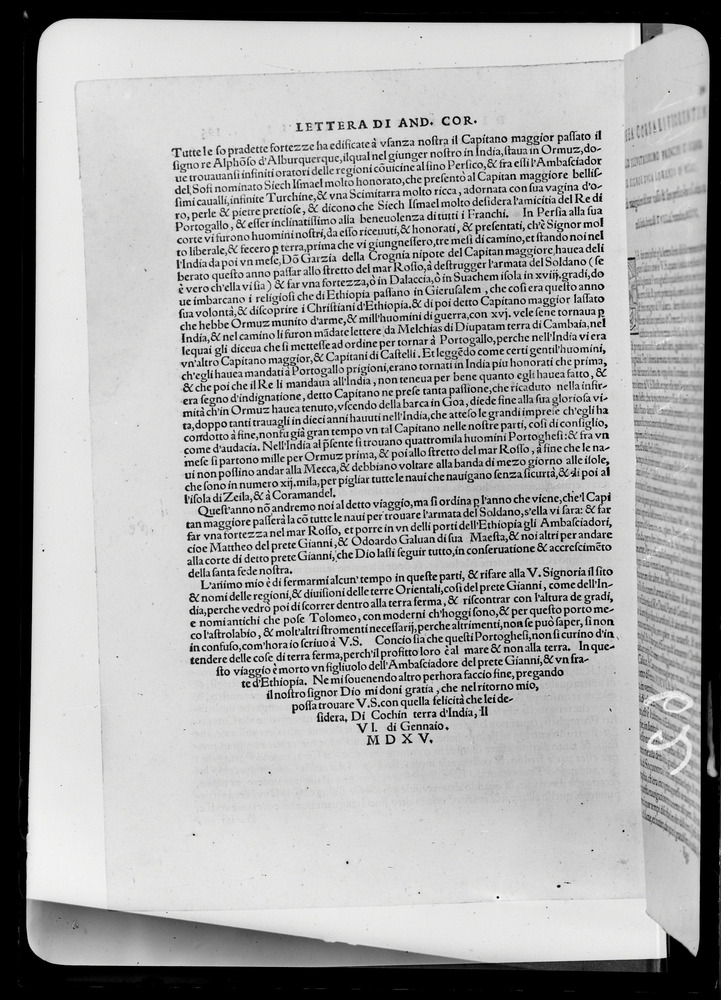 LETTERA DI AND. COR.
Tutte le ſo pradette fortezze ha edificate à vſanza noſtra il Capitano maggior paſſato il
ſigno re Alphōſo d'Alburquerque, ilqual nel giunger noſtro in India, ſtaua in Ormuz, do-
ue trouauanſi infiniti oratori delle regioni cōuicine al ſino Perſico, & fra eſſi l'Ambaſciador
del Sofi nominato Siech Iſmael molto honorato, che preſentò al Capitan maggiore belliſ-
ſimi caualli, infinite Turchine, & vna Scimitarra molto ricca, adornata con ſua vagina d'o-
ro, perle & pietre pretioſe, & dicono che Siech Iſmael molto deſidera l'amicitia del Re di
Portogallo, & eſſer inclinatiſſimo alla beneuolenza di tutti i Franchi. In Perſia alla ſua
corte vi furono huomini noſtri, da eſſo riceuuti, & honorati, & preſentati, ch'è Signor mol
to liberale, & fecero p terra, prima che vi giungneſſero, tre meſi di camino, et ſtando noi nel
l'India da poi vn meſe, Dō Garzia della Crognia nipote del Capitan maggiore, hauea deli
berato queſto anno paſſar allo ſtretto del mar Roſſo, à deſtrugger l'armata del Soldano (ſe
è vero ch'ella vi ſia) & far vna fortezza, ò in Dalaccia, ò in Suachem iſola in xviij. gradi, do
ue imbarcano i religioſi che di Ethiopia paſſano in Gieruſalem, che coſi era queſto anno
ſua volontà, & diſcoprire i Chriſtiani d'Ethiopia. & di poi detto Capitano maggior laſſato
che hebbe Ormuz munito d'arme, & mill'huomini di guerra, con xvj. vele ſene tornaua p
India, & nel camino li furon mādate lettere da Melchias di Diupatam terra di Cambaia, nel
lequai gli diceua che ſi metteſſe ad ordine per tornar à Portogallo, perche nell'India vi era
vn'altro Capitano maggior, & Capitani di Caſtelli. Et leggēdo come certi gentil'huomini,
ch'egli hauea mandati à Portogallo prigioni, erano tornati in India piu honorati che prima,
& che poi che il Re li mandaua all'India, non teneua per bene quanto egli hauea fatto, &
era ſegno d'indignatione, detto Capitano ne preſe tanta paſſione, che ricaduto nella infir-
mità ch'in Ormuz hauea tenuto, vſcendo della barca in Goa, diede fine alla ſua glorioſa vi-
ta, doppo tanti trauagli in dieci anni hauuti nell'India, che atteſo le grandi impreſe ch'egli ha
condotto à fine, non fu già gran tempo vn tal Capitano nelle noſtre parti, coſi di conſiglio,
come d'audacia. Nell'India al pſente ſi trouano quattromila huomini Portogheſi: & fra vn
meſe ſi partono mille per Ormuz prima, & poi allo ſtretto del mar Roſſo, à fine che le na-
ui non poſſino andar alla Mecca, & debbiano voltare alla banda di mezo giorno alle iſole,
che ſono in numero xij. mila, per pigliar tutte le naui che nauigano ſenza ſicurtà, & di poi al
l'iſola di Zeila, & à Coramandel.
Queſt'anno nō andremo noi al detto viaggio, ma ſi ordina p l'anno che viene, che'l Capi
tan maggiore paſſerà la cō tutte le naui per trouare l'armata del Soldano, s'ella vi ſara: & far
far vna fortezza nel mar Roſſo, et porre in vn delli porti dell'Ethiopia gli Ambaſciadori,
cioe Mattheo del prete Gianni, & Odoardo Galuan di ſua Maeſta, & noi altri per andare
alla corte di detto prete Gianni, che Dio laſſi ſeguir tutto, in conſeruatione & accreſcimēto
della ſanta fede noſtra.
L'animo mio è di fermarmi alcun' tempo in queſte parti, & riſare alla V. Signoria il ſito
& nomi delle regioni, & diuiſioni delle terre Orientali, coſi del prete Gianni, come dell'In-
dia, perche vedrò poi di ſcorrer dentro alla terra ferma, & riſcontrar con l'altura de gradi,
e nomi antichi che poſe Tolomeo, con moderni ch'hoggi ſono, & per queſto porto me-
co l'aſtrolabio, & molt'altri ſtromenti neceſſarij, perche altrimenti, non ſe può ſaper, ſi non
in confuſo, com'hora io ſcriuo à V.S. Concio ſia che queſti Portogheſi, non ſi curino d'in
tendere delle coſe di terra ferma, perch'il profitto loro è al mare & non alla terra. In que-
ſto viaggio è morto vn figliuolo dell'Ambaſciadore del prete Gianni, & vn fra-
te d'Ethiopia. Ne mi ſouenendo altro perhora faccio fine, pregando
il noſtro ſignor Dio mi doni gratia, che nel ritorno mio,
poſſa trouare V.S. con quella felicità che lei de-
ſidera. Di Cochin terra d'India, Il
VI. di Gennaio.
MDXV.